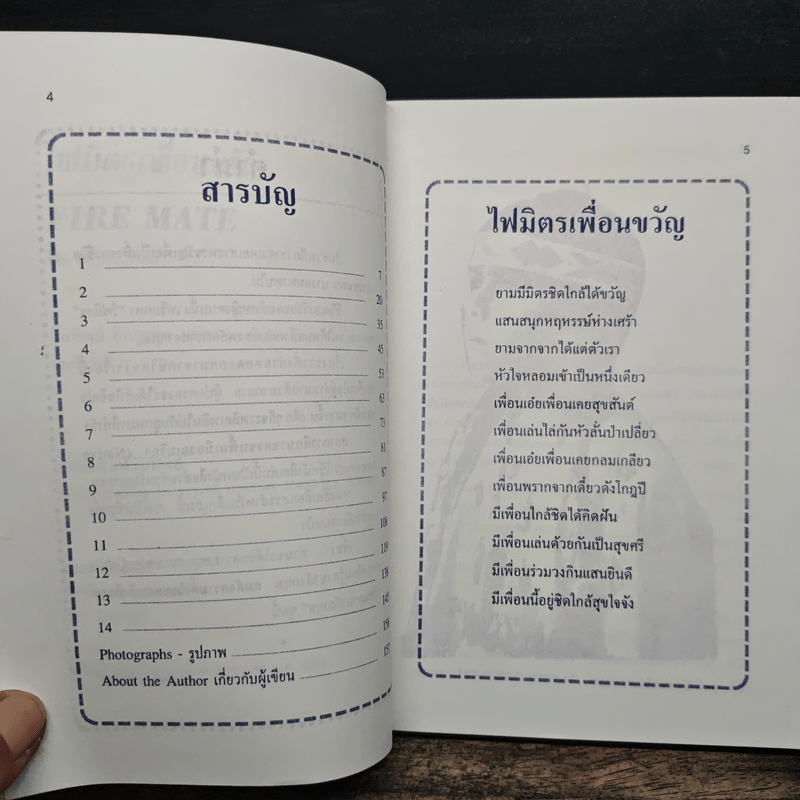 4
สารบัญ
1 7
2 20
3 35
4 45
5 53
6 63
7 73
8 81
9 87
10 97
11 108
12 119
13 138
14 145
Photographs - รูปภาพ 156
About the Author เกี่ยวกับผู้เขียน 157
5
ไฟมิตรเพื่อนขวัญ
ยามมีมิตรชิดใกล้ได้ขวัญ
แสนสนุกหฤหรรษ์ห่างเศร้า
ยามจากจากได้แต่ตัวเรา
หัวใจหลอมเข้าเป็นหนึ่งเดียว
เพื่อนเอ๋ยเพื่อนเคยสุขสันต์
เพื่อนเล่นไล่กันหัวลั่นป่าเปลี่ยว
เพื่อนเอ๋ยเพื่อนเคยกลมเกลียว
เพื่อนพรากจากเดี๋ยวดังโกฏปี
มีเพื่อนใกล้ชิดได้คิดฝัน
มีเพื่อนเล่นด้วยกันเป็นสุขศรี
มีเพื่อนร่วมวงกินแสนยินดี
มีเพื่อนนี้อยู่ชิดใกล้สุขใจจัง